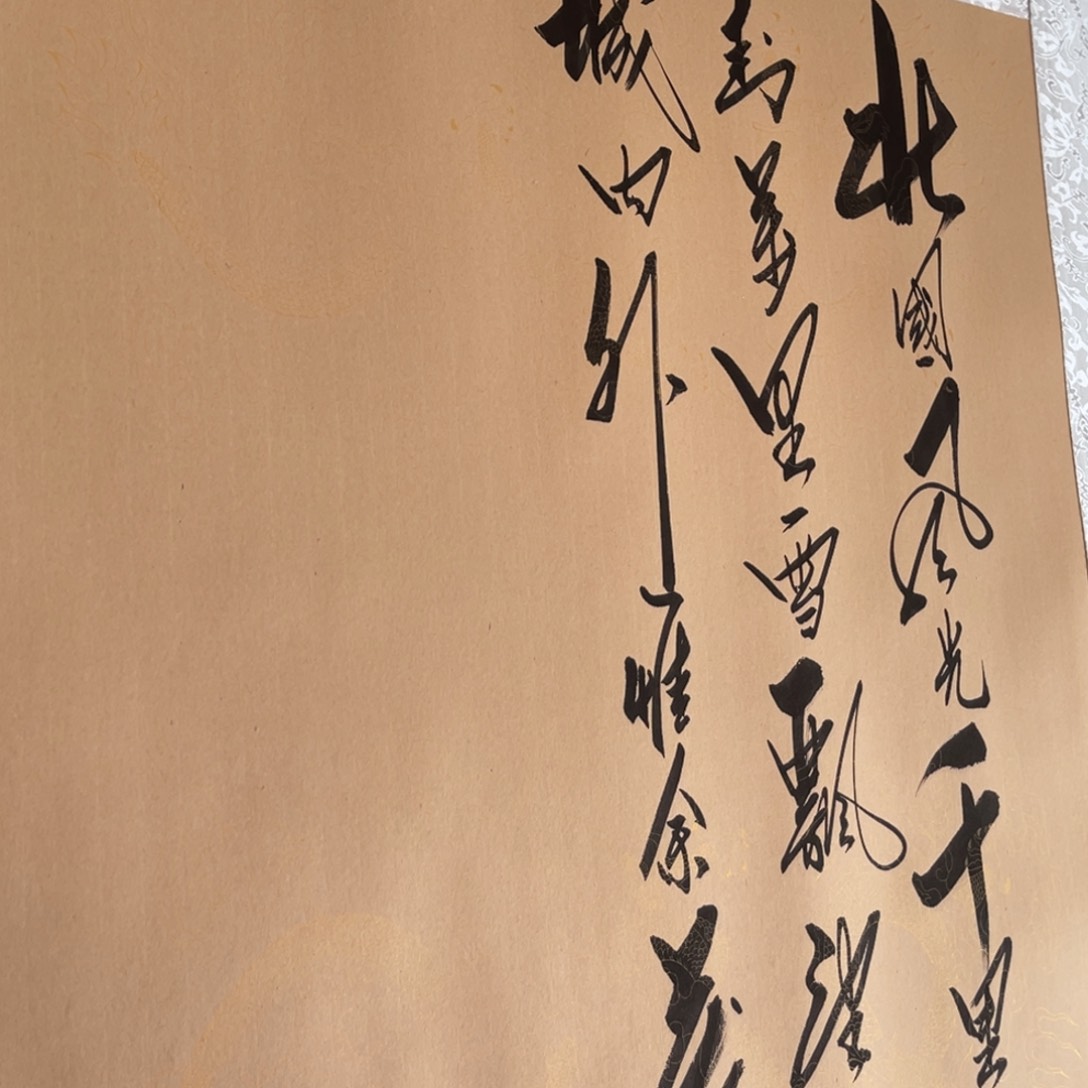 北國風光千里
封萬里雪飄望
城内外惟余莽